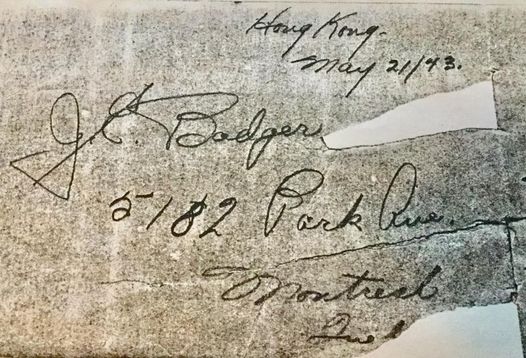 Hong Kong.
May 21/43.
J.C. Badger
5182 Park Ave.
Montreal
Que